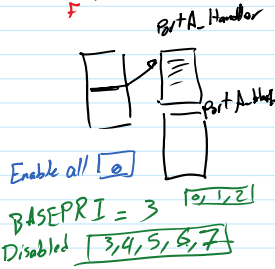 F
PortA_Handler
PortA_Hand
Enable all 0
0, 1, 2
BASEPRI = 3
Disabled 3, 4, 5, 6, 7